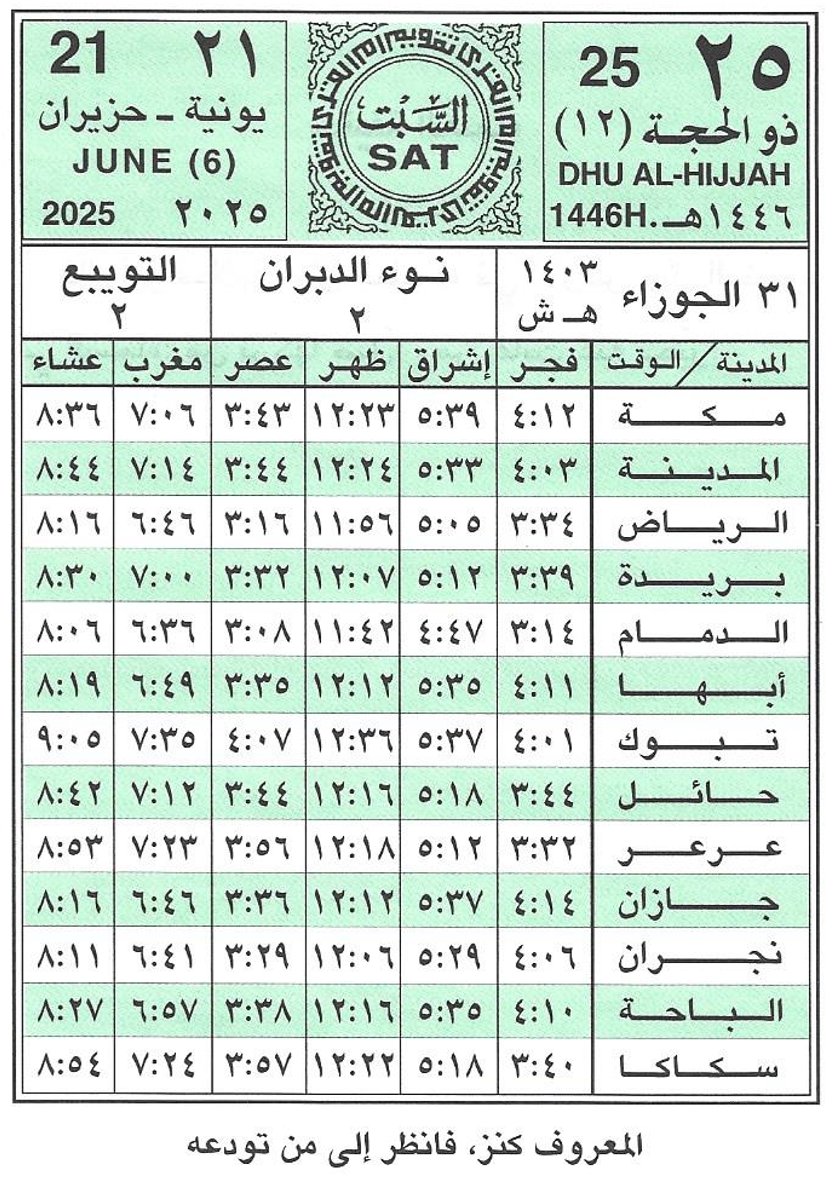 ٢٥ 25
ذو الحجة (١٢)
DHU AL-HIJJAH
١٤٤٦هـ. 1446H
السَّبْت
SAT
٢١ 21
يونية - حزيران
JUNE (6)
٢٠٢٥ 2025
٣١ الجوزاء ١٤٠٣ هـ ش
نوء الدبران ٢
التويبع ٢
المدينة / الوقت فجر إشراق ظهر عصر مغرب عشاء
مكة ٤:١٢ ٥:٣٩ ١٢:٢٣ ٣:٤٣ ٧:٠٦ ٨:٣٦
المدينة ٤:٠٣ ٥:٣٣ ١٢:٢٤ ٣:٤٤ ٧:١٤ ٨:٤٤
الرياض ٣:٣٤ ٥:٠٥ ١١:٥٦ ٣:١٦ ٦:٤٦ ٨:١٦
بريدة ٣:٣٩ ٥:١٢ ١٢:٠٧ ٣:٣٢ ٧:٠٠ ٨:٣٠
الدمام ٣:١٤ ٤:٤٧ ١١:٤٢ ٣:٠٨ ٦:٣٦ ٨:٠٦
أبها ٤:١١ ٥:٣٥ ١٢:١٢ ٣:٣٥ ٦:٤٩ ٨:١٩
تبوك ٤:٠١ ٥:٣٧ ١٢:٣٦ ٤:٠٧ ٧:٣٥ ٩:٠٥
حائل ٣:٤٤ ٥:١٨ ١٢:١٦ ٣:٤٤ ٧:١٢ ٨:٤٢
عرعر ٣:٣٢ ٥:١٢ ١٢:١٨ ٣:٥٦ ٧:٢٣ ٨:٥٣
جازان ٤:١٤ ٥:٣٧ ١٢:١٢ ٣:٣٦ ٦:٤٦ ٨:١٦
نجران ٤:٠٦ ٥:٢٩ ١٢:٠٦ ٣:٢٩ ٦:٤١ ٨:١١
الباحة ٤:١٠ ٥:٣٥ ١٢:١٦ ٣:٣٨ ٦:٥٧ ٨:٢٧
سكاكا ٣:٤٠ ٥:١٨ ١٢:٢٢ ٣:٥٧ ٧:٢٤ ٨:٥٤
المعروف كنز، فانظر إلى من تودعه